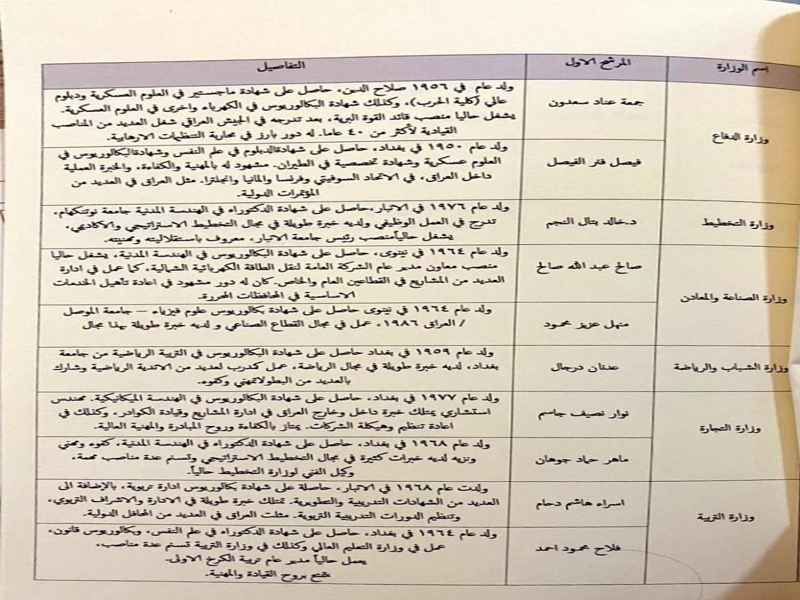 اسم الوزارة	المرشح الاول	التفاصيل
وزارة الدفاع
جمعة عناد سعدون
ولد عام في ١٩٥٦ صلاح الدين، حاصل على شهادة ماجستير في العلوم العسكرية ودبلوم
عالي (كلية الحرب)، وكذلك شهادة البكالوريوس في الكهرباء واخرى في العلوم العسكرية.
يشغل حاليا منصب قائد القوة البرية، بعد تدرجه في الجيش العراقي شغل العديد من المناصب
القيادية لأكثر من ٤٠ عاما. له دور بارز في محاربة التنظيمات الارهابية.
فيصل فنر الفيصل
ولد عام ١٩٥٠ في بغداد، حاصل على شهادةالدبلوم في علم النفس وشهادةالبكالوريوس في
العلوم عسكرية وشهادة تخصصية في الطيران. مشهود له بالمهنية والكفاءة، والخبرة العملية
داخل العراق، في الاتحاد السوفيتي وفرنسا والمانيا وانجلترا. مثل العراق في العديد من
المؤتمرات الدولية.
وزارة التخطيط
د.خالد بتال النجم
ولد عام ١٩٧٦ في الانبار،حاصل على شهادة الدكتوراه في الهندسة المدنية جامعة نوتنكهام،
تدرج في العمل الوظيفي ولديه خبرة طويلة في مجال التخطيط الاستراتيجي والاكاديمي،
يشغل حالياًمنصب رئيس جامعة الانبار، معروف باستقلاليته ومهنيته.
وزارة الصناعة والمعادن
صالح عبد الله صالح
ولد عام ١٩٦٤ في نينوى، حاصل على شهادة البكالوريوس في الهندسة المدنية، يشغل حاليا
منصب معاون مدير عام الشركة العامة لنقل الطاقة الكهربائية الشمالية، كما عمل في ادارة
العديد من المشاريع في القطاعين العام والخاص.كان له دور مشهود في اعادة تأهيل الخدمات
الاساسية في المحافظات المحررة.
منهل عزيز محمود
ولد عام ١٩٦٤ في نينوى حاصل على شهادة بكالوريوس علوم فيزياء – جامعة الموصل
/ العراق ١٩٨٦، عمل في مجال القطاع الصناعي و لديه خبرة طويلة بهذا مجال
وزارة الشباب والرياضة
عدنان درجال
ولد عام ١٩٥٩ في بغداد حاصل على شهادة البكالوريوس في التربية الرياضية من جامعة
بغداد، لديه خبرة طويلة في مجال الرياضة، عمل كمدرب لعديد من الاندية الرياضية وشارك
بالعديد من البطولاتمهني وكفوء.
وزارة التجارة
نوار نصيف جاسم
ولد عام ١٩٧٧ في بغداد، حاصل على شهادة البكالوريوس في الهندسة الميكانيكية. مهندس
استشاري يمتلك خبرة داخل وخارج العراق في ادارة المشاريع وقيادة الكوادر، وكذلك في
اعادة تنظيم وهيكلة الشركات. يمتاز بالكفاءة وروح المبادرة والمهنية العالية.
ماهر حماد جوهان
ولد عام ١٩٦٨ في بغداد، حاصل على شهادة الدكتوراه في الهندسة المدنية، كفوء ومهني
ونزيه لديه خبرات كثيرة في مجال التخطيط الاستراتيجي وتسنم عدة مناصب مهمة،
وكيل الفني لوزارة التخطيط حالياً.
وزارة التربية
اسراء هاشم دحام
ولدت عام ١٩٦٨ في الانبار، حاصلة على شهادة بكالوريوس ادارة تربوية، بالإضافة الى
العديد من الشهادات التدريبية والتطويرية. تمتلك خبرة طويلة في الادارة والاشراف التربوي،
وتنظيم الدورات التدريبية التربوية. مثلت العراق في العديد من المحافل الدولية.
فلاح محمود احمد
ولد عام ١٩٦٤ في بغداد، حاصل على شهادة الدكتوراه في علم النفس، وبكالوريوس قانون،
عمل في وزارة التعليم العالي وكذلك في وزارة التربية تسنم عدة مناصب،
يعمل حالياً مدير عام تربية الكرخ الاولى.
يتمتع بروح القيادة والمهنية.